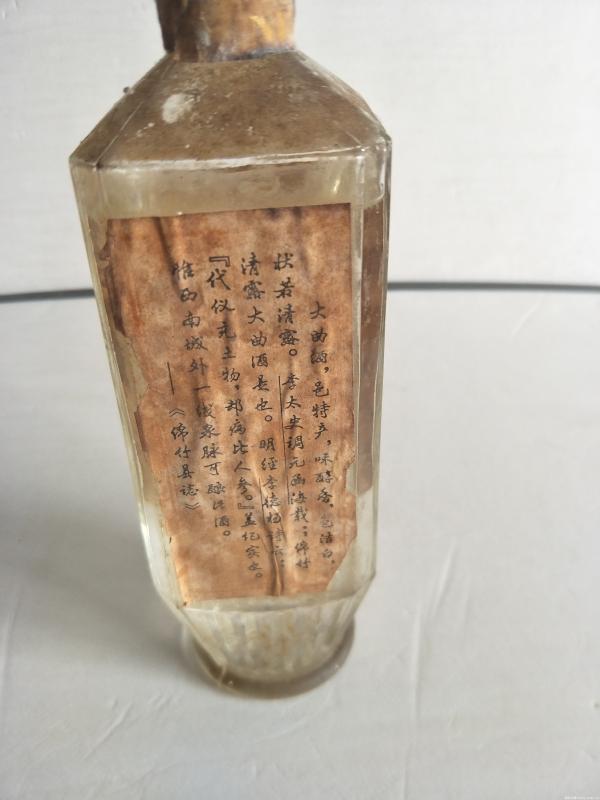 大曲酒，邑特产，味醇香，色洁白，
状若清露。李太史调元函海载：绵竹
清露大曲酒是也。明经李德扬诗云：
『代仪充土物，却病比人参。』盖纪实也。
惟西南城外一线泉脉可酿此酒。
——《绵竹县志》